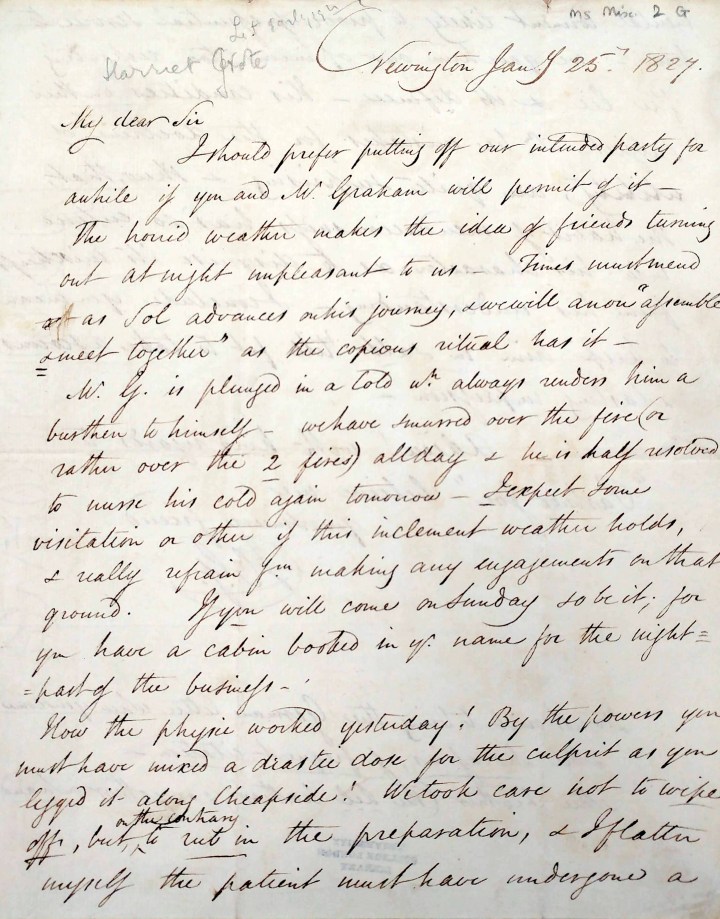 MS Misc 2 G
Harriet Grote
Newington Jany 25th. 1827.
My dear Sir
I should prefer putting off our intended party for
awhile if you and Mr. Graham will permit of it —
The horrid weather makes the idea of friends turning
out at night unpleasant to us — Times must mend
as Sol advances on his journey, & we will anon "assemble
& meet together" as the copious ritual has it —
Mr. G. is plunged in a cold wh. always renders him a
burthen to himself — we have smurred over the fire (or
rather over the 2 fires) all day & he is half resolved
to nurse his cold again tomorrow — I expect some
visitation or other if this inclement weather holds,
& really refrain fm. making any engagements on that
ground. If you will come on Sunday so be it; for
you have a cabin booked in yr. name for the night =
= part of the business —
How the physic worked yesterday! By the powers you
must have mixed a drastic dose for the culprit as you
legged it along Cheapside! We took care not to wipe
off, but, on the contrary to rub in the preparation, & I flatter
myself the patient must have undergone a